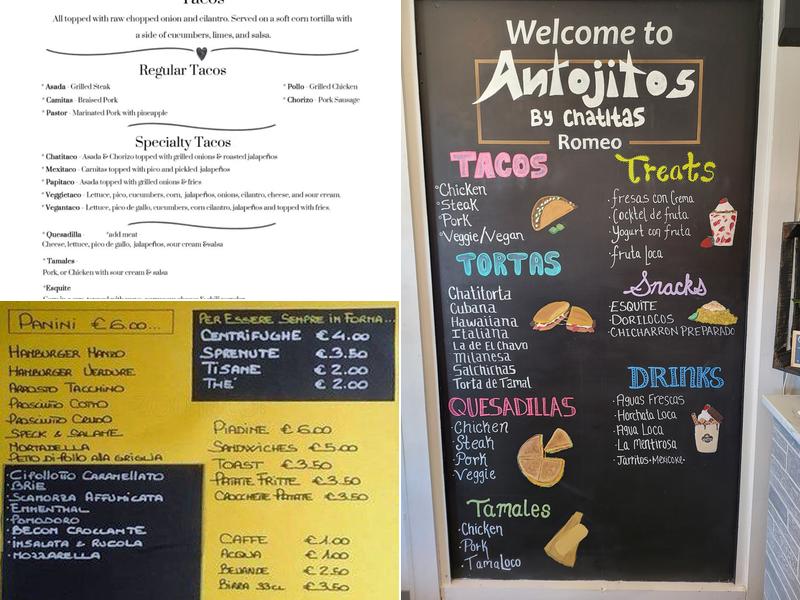 Tacos
All topped with raw chopped onion and cilantro. Served on a soft corn tortilla with
a side of cucumbers, limes, and salsa.
Regular Tacos
* Asada - Grilled Steak
* Pollo - Grilled Chicken
* Carnitas - Braised Pork
* Chorizo - Pork Sausage
* Pastor - Marinated Pork with pineapple
Specialty Tacos
* Chatitaco - Asada & Chorizo topped with grilled onions & roasted jalapeños
* Mexitaco - Carnitas topped with pico and pickled jalapeños
* Papitaco - Asada topped with grilled onions & fries
* Veggietaco - Lettuce, pico, cucumbers, corn, jalapeños, onions, cilantro, cheese, and sour cream.
* Vegantaco - Lettuce, pico de gallo, cucumbers, corn cilantro, jalapeños and topped with fries.
* Quesadilla - *add meat
Cheese, lettuce, pico de gallo, jalapeños, sour cream &salsa
* Tamales -
Pork, or Chicken with sour cream & salsa
*Esquite
PANINI € 6.00...
HAMBURGER MANZO
HAMBURGER VERDURE
ARROSTO TACCHINO
PROSCIUTTO COTTO
PROSCIUTTO CRUDO
SPECK & SALAME
MORTADELLA
PETTO DI POLLO ALLA GRIGLIA
• CIPOLLOTTO CARAMELLATO
• BRIE
• SCAMORZA AFFUMICATA
• EMMENTHAL
• POMODORO
• BECON CROCCANTE
• INSALATA & RUCOLA
• MOZZARELLA
PER ESSERE SEMPRE IN FORMA...
CENTRIFUGHE € 4.00
SPREMUTE € 3.50
TISANE € 2.00
THE' € 2.00
PIADINE € 6.00
SANDWICHES € 5.00
TOAST € 3.50
PATATE FRITTE € 3.50
CROCCHETTE PATATE € 3.50
CAFFE € 1.00
ACQUA € 1.00
BEVANDE € 2.50
BIRRA 33CL € 3.50
Welcome to
Antojitos
By Chatitas
Romeo
TACOS
• Chicken
• Steak
• Pork
• Veggie/Vegan
TORTAS
Chatitorta
Cubana
Hawaiiana
Italiana
La de El Chavo
Milanesa
Salchichas
Torta de Tamal
QUESADILLAS
• Chicken
• Steak
• Pork
• Veggie
Tamales
• Chicken
• Pork
• Tamaloco
Treats
• fresas con Crema
• Cocktel de fruta
• Yogurt con fruta
• fruta Loca
Snacks
• ESQUITE
• DORILOCOS
• CHICHARRON PREPARADO
DRINKS
• Aguas Frescas
• Horchata Loca
• Agua Loca
• La Mentirosa
• Jarritos-Mexicoke•